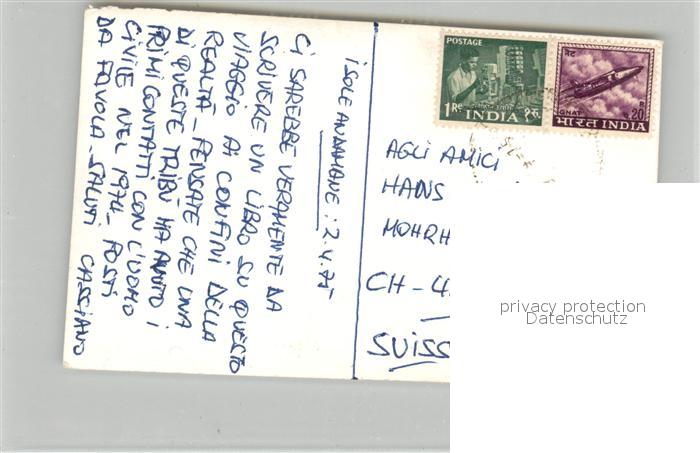 ISOLE ANDAMANE: 2.4.75
CI SAREBBE VERAMENTE DA
SCRIVERE UN LIBRO SU QUESTO
VIAGGIO AI CONFINI DELLA
REALTÀ - PENSATE CHE UNA
DI QUESTE TRIBÙ HA AVUTO I
PRIMI CONTATTI CON L'UOMO
CIVILE NEL 1974 - POSTI
DA FAVOLA - SALUTI CASSIANO
POSTAGE
1Re INDIA १रु.
नेट
GNAT
20
भारत INDIA
AGLI AMICI
HANS
MOHRH
CH-4
SUISS
privacy protection
Datenschutz